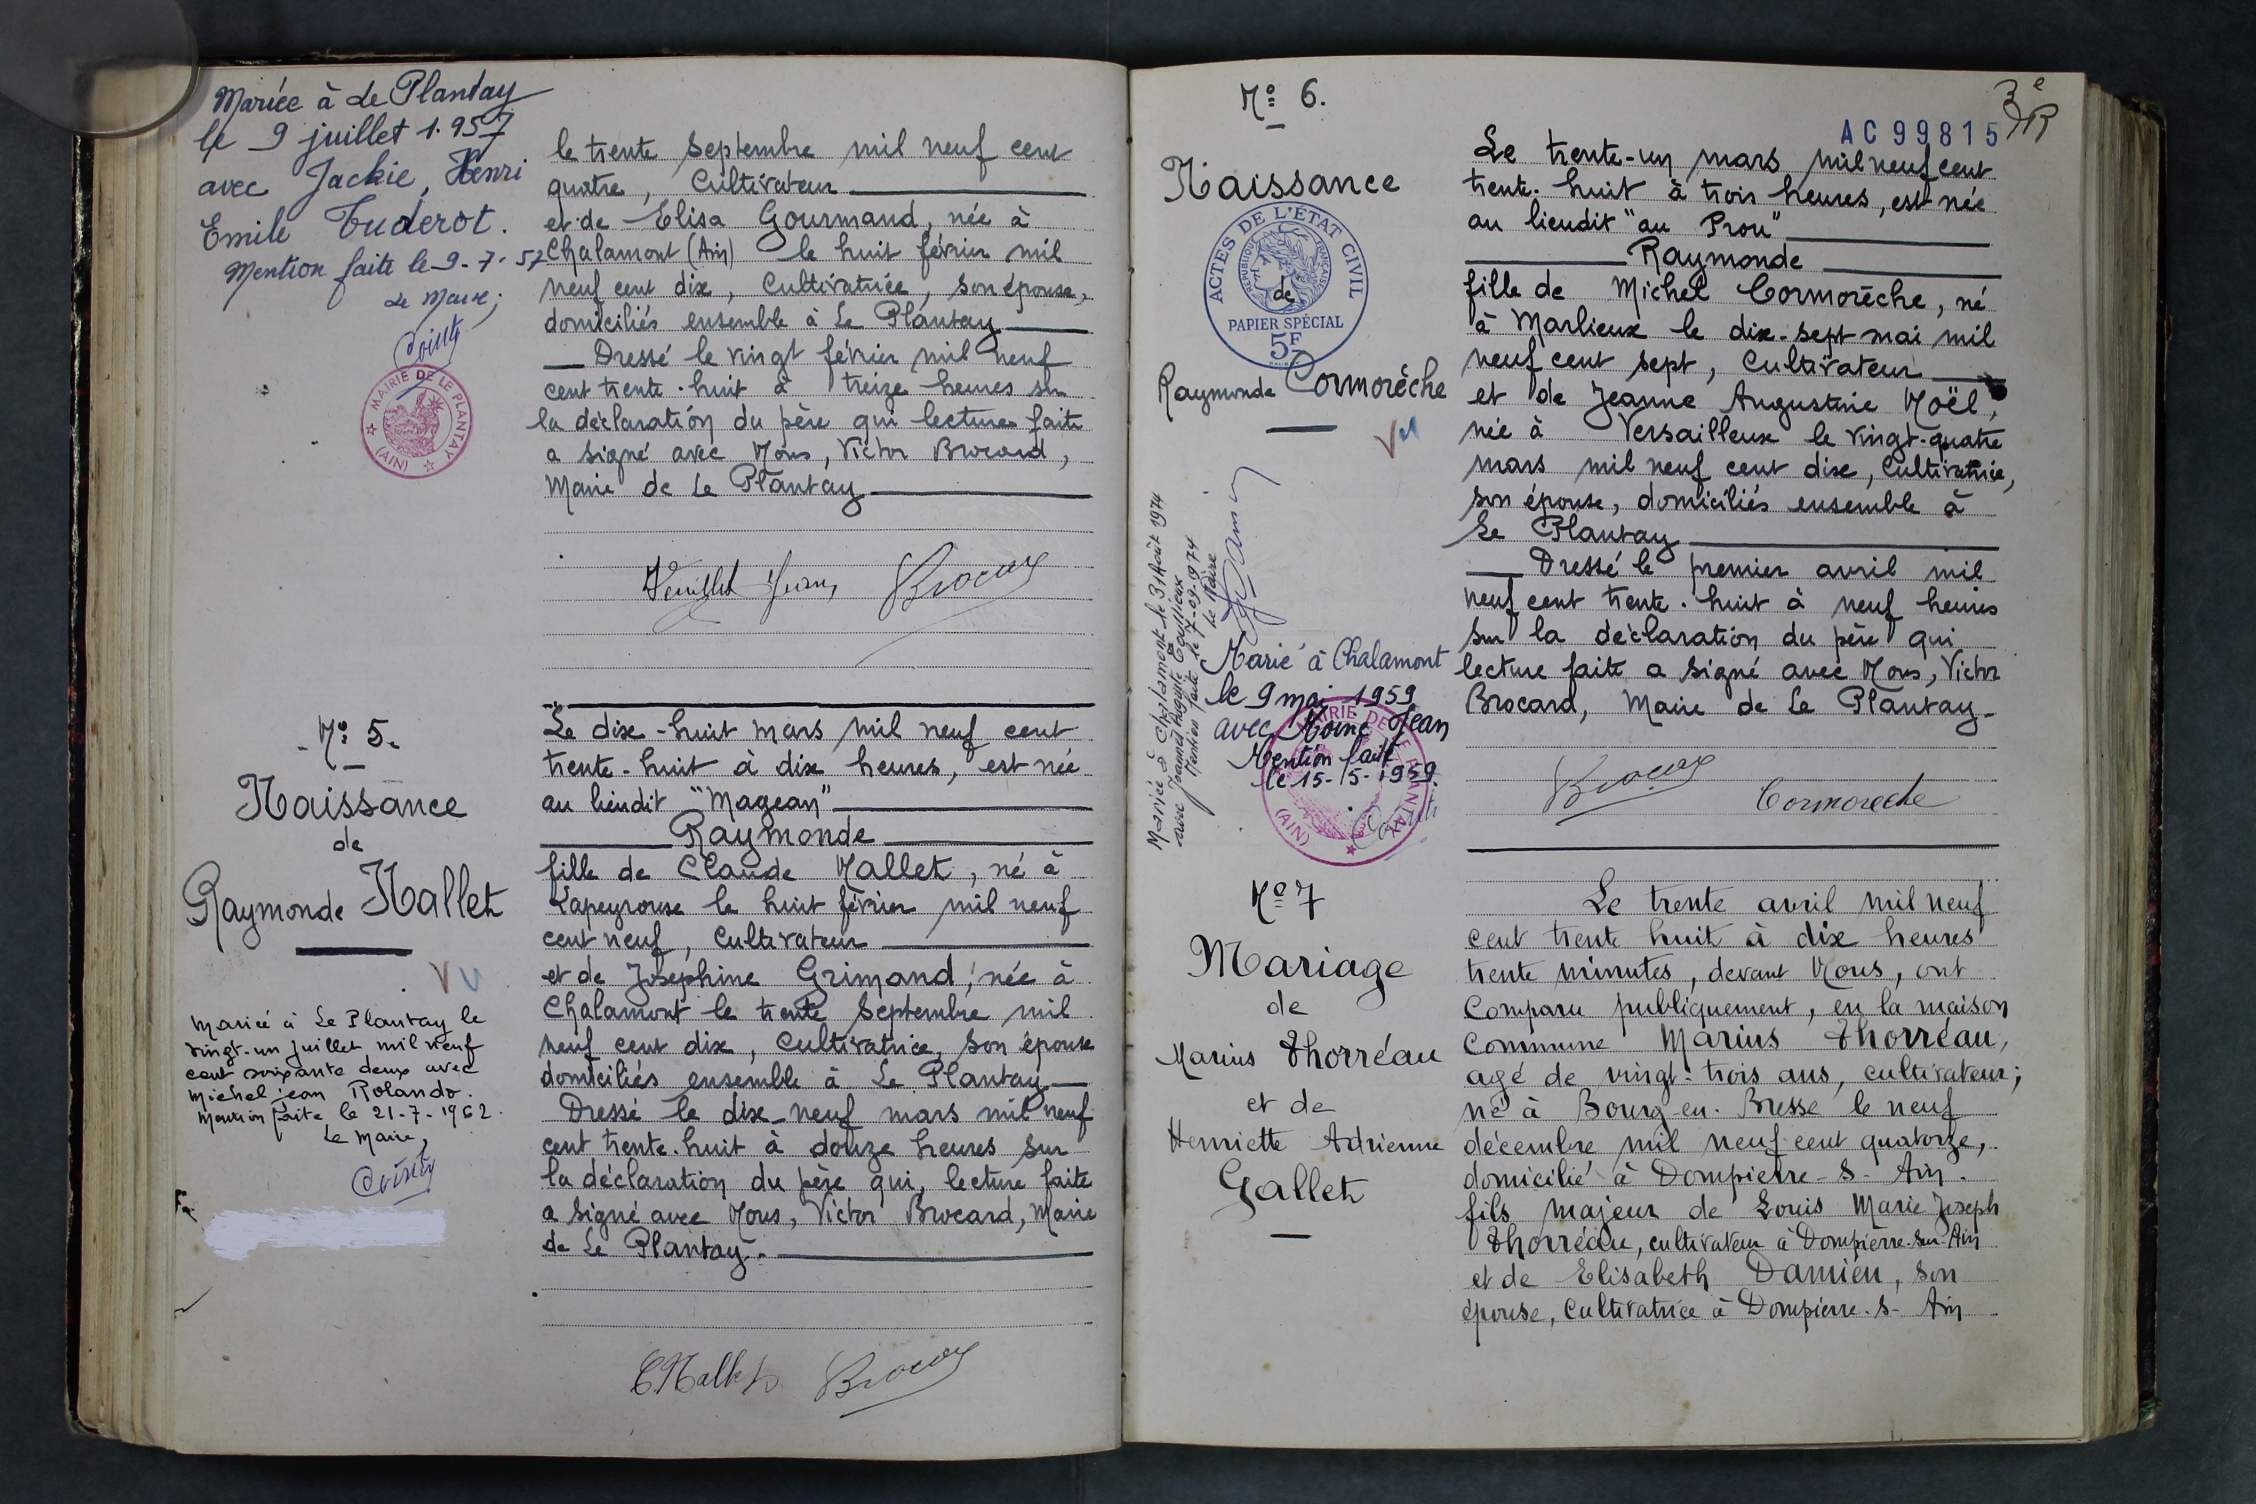 Mariée à Le Plantay
le 9 juillet 1.957
avec Jackie, Henri
Emile Tuderot.
Mention faite le 9-7-57
Le Maire,
MAIRIE DE LE PLANTAY
(AIN)
le trente septembre mil neuf cent
quatre, Cultivateur
et de Elisa Gourmand, née à
Chalamont (Ain) le huit février mil
neuf cent dix, Cultivatrice, son épouse,
domiciliés ensemble à Le Plantay
Dressé le vingt février mil neuf
cent trente-huit à treize heures sur
la déclaration du père qui lecture faite
a signé avec Nous, Victor Brocard,
Maire de Le Plantay
Brocard
N° 5.
Naissance
de
Raymonde Nallet
Vu
Mariée à Le Plantay le
vingt-un juillet mil neuf
cent soixante deux avec
Michel jean Rolando.
Mention faite le 21-7-1962.
Le Maire,
Le dix-huit mars mil neuf cent
trente-huit à dix heures, est née
au lieudit "Magean"
Raymonde
fille de Claude Nallet, né à
Lapeyrouse le huit février mil neuf
cent neuf, Cultivateur
et de Joséphine Grimand, née à
Chalamont le trente septembre mil
neuf cent dix, Cultivatrice, son épouse
domiciliés ensemble à Le Plantay
Dressé le dix-neuf mars mil neuf
cent trente-huit à douze heures sur
la déclaration du père qui, lecture faite
a signé avec Nous, Victor Brocard, Maire
de Le Plantay.
C Nallet Brocard
N° 6.
Naissance
ACTES DE L'ÉTAT CIVIL
RÉPUBLIQUE FRANÇAISE
de
PAPIER SPÉCIAL
5F
Raymonde Cormorèche
Vu
Mariée à Chalamont le 31 Août 1974
avec Joannès Auguste
Mention faite le 7-09-1974
le Maire
Marié à Chalamont
le 9 mai 1959
avec Moine Jean
Mention faite
le 15-5-1959.
MAIRIE DE LE PLANTAY
(AIN)
3e
AC 99815
Le trente-un mars mil neuf cent
trente-huit à trois heures, est née
au lieudit "au Prou"
Raymonde
fille de Michel Cormorèche, né
à Marlieux le dix-sept mai mil
neuf cent sept, Cultivateur
et de Jeanne Augustine Noël,
née à Versailleux le vingt-quatre
mars mil neuf cent dix, Cultivatrice,
son épouse, domiciliés ensemble à
Le Plantay
Dressé le premier avril mil
neuf cent trente-huit à neuf heures
sur la déclaration du père qui
lecture faite a signé avec Nous, Victor
Brocard, Maire de Le Plantay-
Brocard Cormoreche
N° 7
Mariage
de
Marius Thorréau
et de
Henriette Adrienne
Gallet
Le trente avril mil neuf
cent trente huit à dix heures
trente minutes, devant Nous, ont
Comparu publiquement, en la maison
Commune Marius Thorréau,
agé de vingt-trois ans, cultivateur;
né à Bourg-en-Bresse le neuf
décembre mil neuf cent quatorze,
domicilié à Dompierre-s-Ain.
fils majeur de Louis Marie Joseph
Thorréau, cultivateur à Dompierre-sur-Ain
et de Elisabeth Damien, son
épouse, Cultivatrice à Dompierre-s-Ain